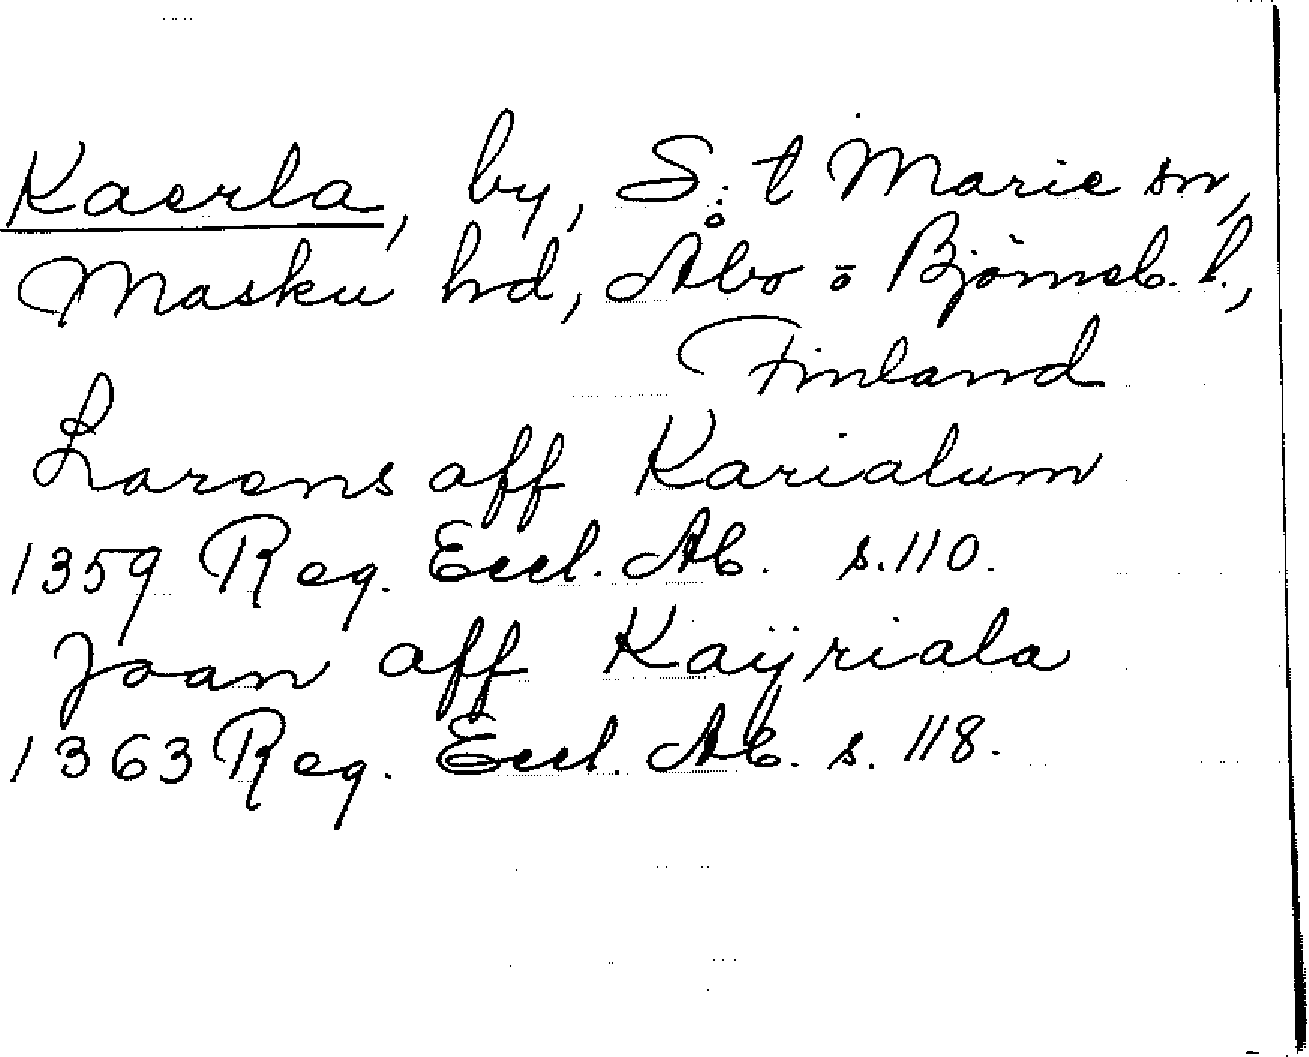 Kaerla, by, S:t Marie sn,
Masku hd, Åbo o Björneb. l.,
Finland
Larens aff Karialum
1359 Reg. Eccl. Ab. s. 110.
Joan aff Kaÿriala
1363 Reg. Eccl. Ab. s. 118.